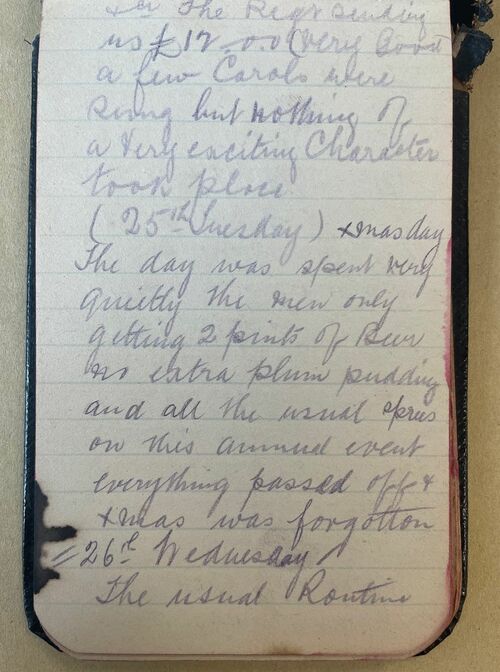 The Regt sending
us £12-0.0 (very Good
a few Carols were
sung but nothing of
a very exciting Character
took place
(25th Tuesday) xmas day
The day was spent very
quietly the men only
getting 2 pints of Beer
no extra plum pudding
and all the usual
on this annual event
everything passed off &
xmas was forgotton
=26th Wednesday
The usual Routine